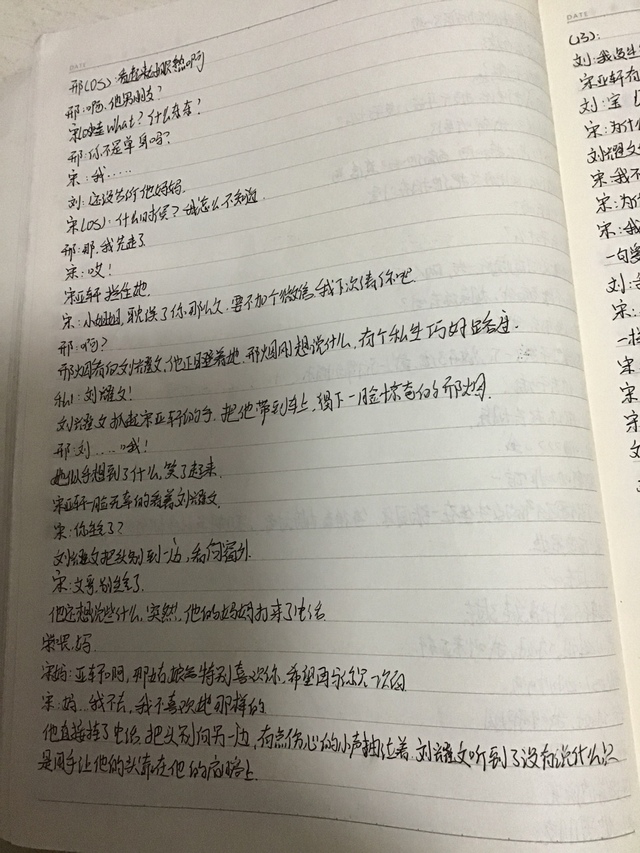 DATE
邢(OS):看起来好眼熟啊
邢:啊,他男朋友?
宋:哇what?什么东东?
邢:你不是单身吗?
宋:我.....
刘:还没告诉他妈妈.
宋(OS):什么时候?我怎么不知道
邢:那,我先走了
宋:哎!
宋亚轩拦住她.
宋:小姐姐,耽误了你那么久,要不加个微信,我下次请你吧.
邢:啊?
邢烟看向刘耀文,他正瞪着她,邢烟刚想说什么,有个私生巧好路过.
私:刘耀文!
刘耀文抓起宋亚轩的手,把他带到车上,留下一脸惊奇的邢烟.
邢:刘....哦!
她似乎想到了什么,笑了起来.
宋亚轩一脸无辜的看着刘耀文
宋:你生气了?
刘耀文把头别到一边,看向窗外.
宋:文哥,别生气了.
他还想说些什么,突然,他的妈妈打来了电话.
宋:喂,妈
宋妈:亚轩啊,那姑娘特别喜欢你,希望再与你见一次面
宋:妈...我不去,我不喜欢她那样的
他直接挂了电话,把头别向另一边,有点伤心的小声抽泣着.刘耀文听到了没有说什么,只
是用手让他的头靠在他的肩膀上.
DATE
(13):
刘:我没生
宋亚轩有
刘:宝
宋:为什
刘耀文
宋:我不
宋:为什
宋:我
一句
刘:
宋:
一
宋:
宋:
宋
文